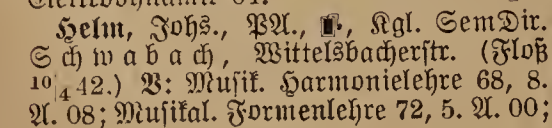 Helm, Johs., PA., Kgl. SemDir.
Schwabach, Wittelsbacherstr. (Floß
10|4 42.) V: Musik. Harmonielehre 68, 8.
A. 08; Musikal. Formenlehre 72, 5. A. 00;